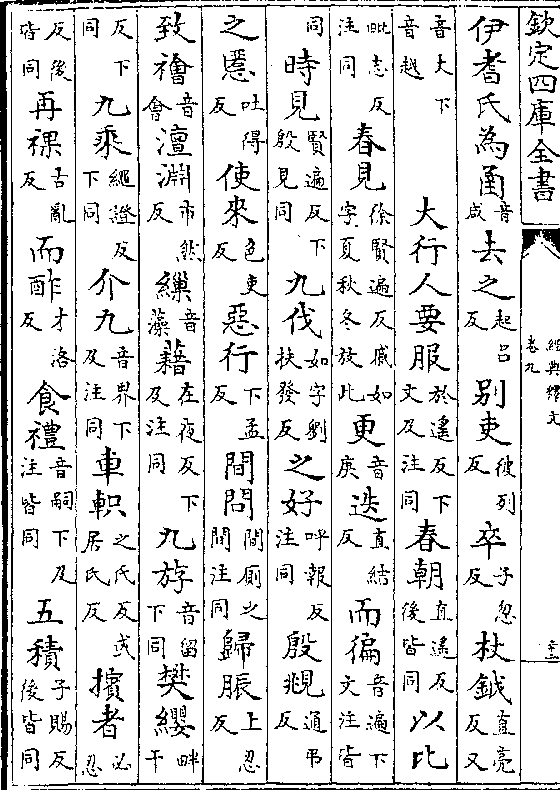 欽定四庫全書
經典釋文
卷九
伊耆氏為函音咸去之起呂反別吏彼列反卒子忽反杖鉞直亮反又
音丈下音越大行人要服於遙反下文及注同春朝直遙反後皆同以比
毗志反注同春見徐賢遍反戚如字夏秋冬放此更音庚迭直結反而徧音遍下文注皆
同時見賢遍反下殷見同九伐如字劉扶發反之好呼報反注同殷覜通弔反
之慝吐得反使來色吏反惡行下孟反間問間厠之間注同歸脤上忍反
致禬音會澶淵市然反繅音藻藉在夜反下及注同九斿音留下同樊纓畔干
反下同九乘繩證反下同介九音界下及注同車軹之氏反或居氏反擯者必忍
反後皆同再祼古亂反而酢才洛反食禮音嗣下及注皆同五積子賜反後皆同